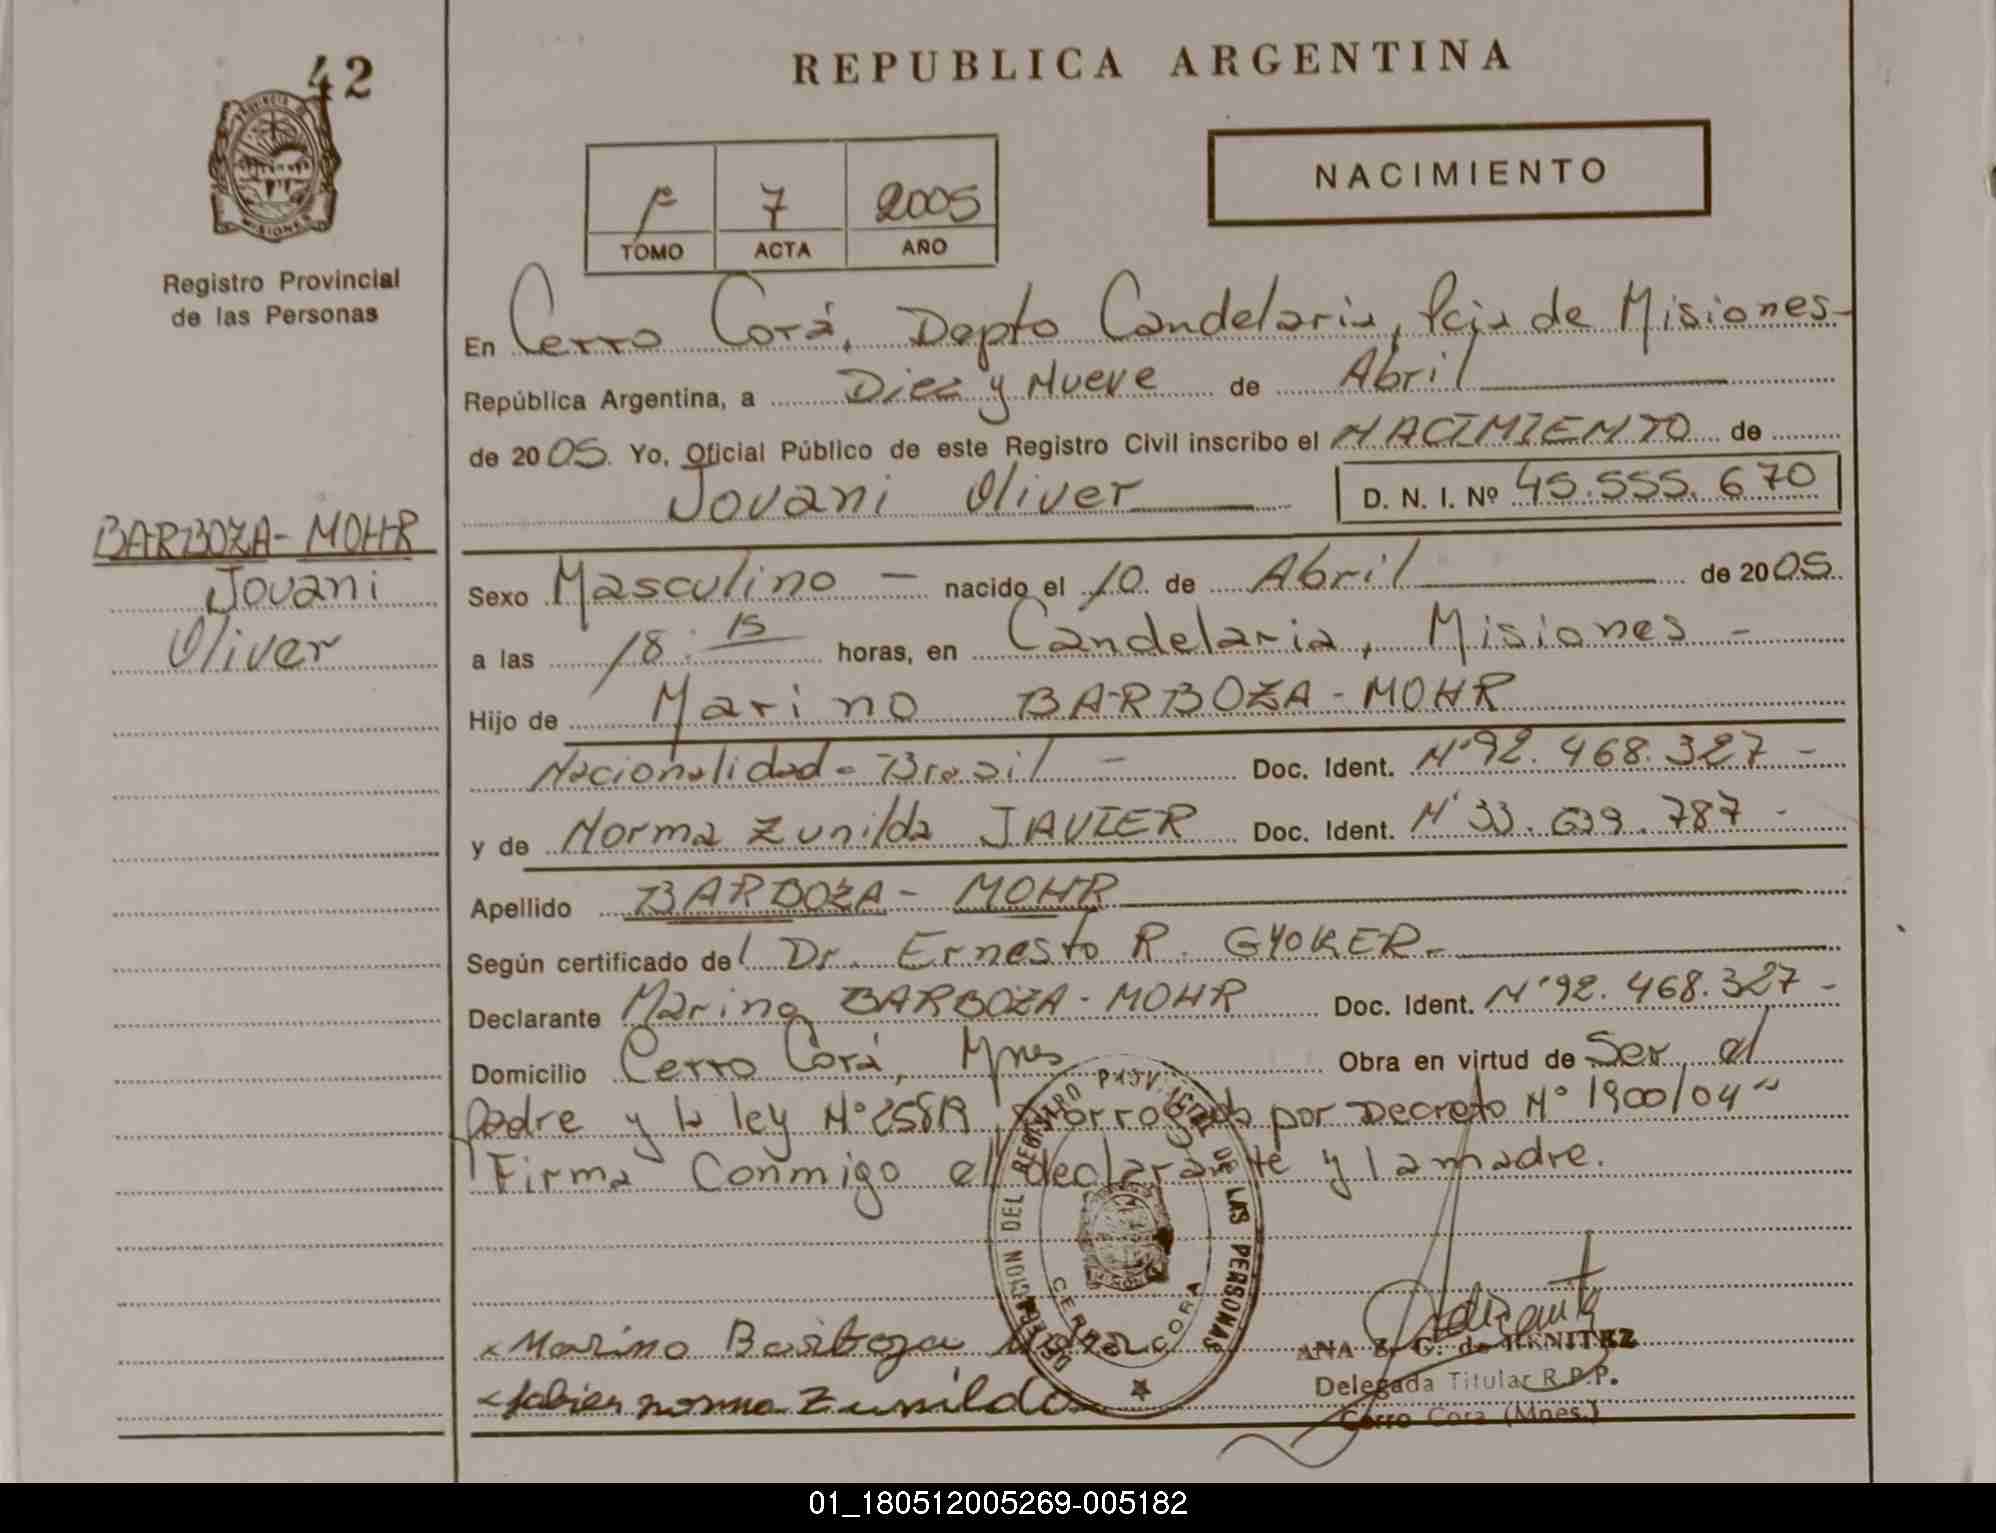 42
REPUBLICA ARGENTINA
NACIMIENTO
7 2005
TOMO ACTA AÑO
Registro Provincial
de las Personas
En Cerro Corá, Depto Candelaria, Pcia de Misiones-
República Argentina, a Diez y Nueve de Abril
de 2005. Yo, Oficial Público de este Registro Civil inscribo el NACIMIENTO de
Jovani Oliver D. N. I. Nº 45.555.670
BARBOZA-MOHR
Jovani
Oliver
Sexo Masculino - nacido el 10 de Abril de 2005
a las 18:15 horas, en Candelaria, Misiones -
Hijo de Marino BARBOZA-MOHR
Nacionalidad-Brasil - Doc. Ident. N°92.468.327-
y de Norma Zunilda JAVIER Doc. Ident. N°33.639.787-
Apellido BARBOZA-MOHR
Según certificado del Dr. Ernesto R. GYOKER-
Declarante Marino BARBOZA-MOHR Doc. Ident. N°92.468.327-
Domicilio Cerro Corá, Mnes Obra en virtud de Ser el
Padre y la ley N° prorrogada por Decreto N° 1900/04"
Firma Conmigo el declarante y la madre.
DELEGACION DEL REGISTRO PROVINCIAL DE LAS PERSONAS
CERRO CORA
Marino Barboza Mohr
Javier norma Zunilda
ANA Z. G. de BENITEZ
Delegada Titular R.P.P.
Cerro Cora (Mnes.)
01_180512005269-005182